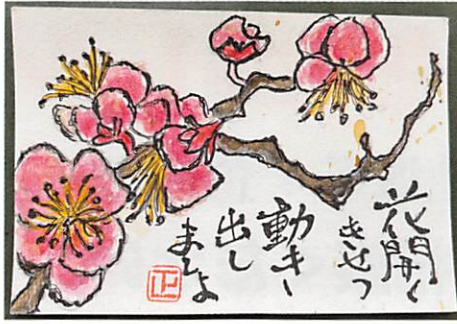 花開く
きせつ
動き
出し
ましよ
正